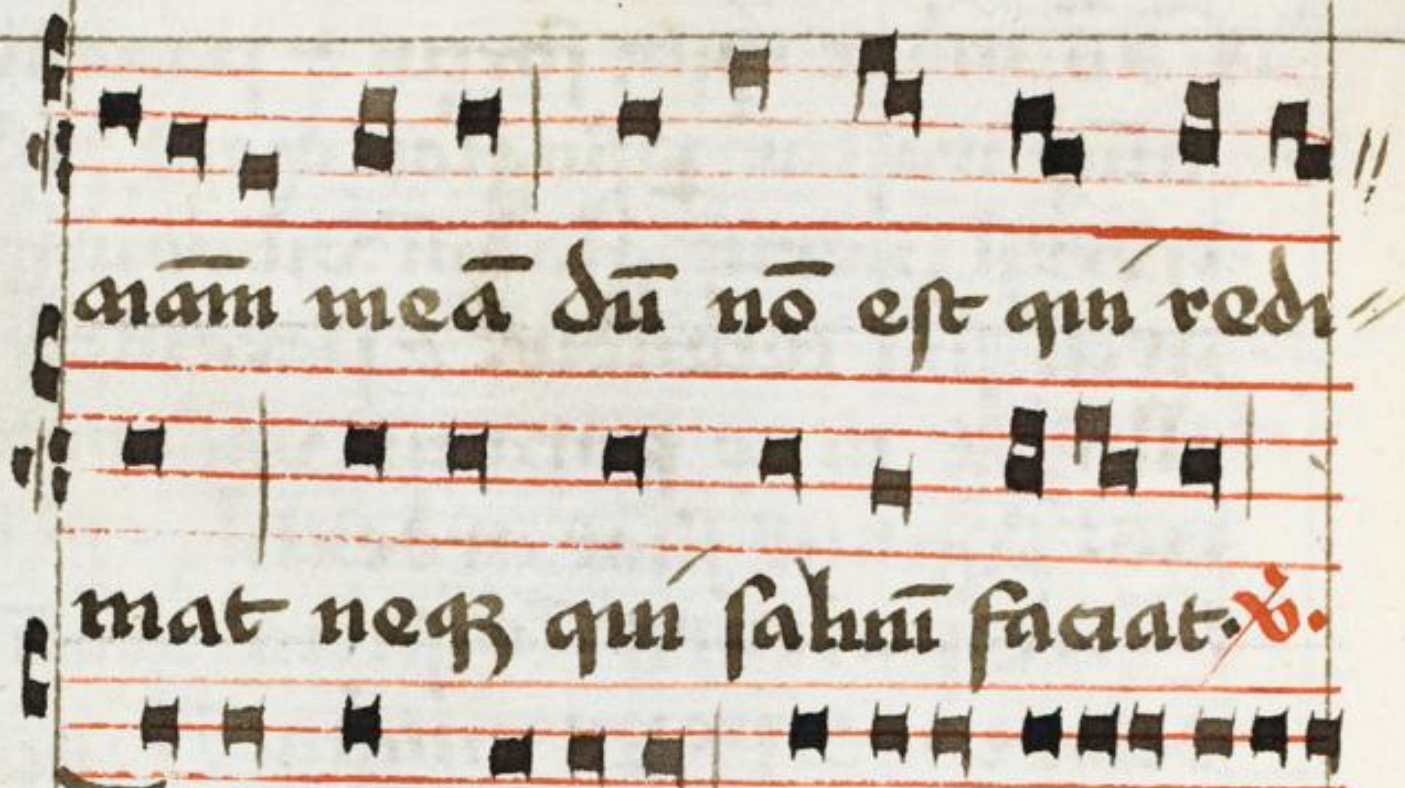 aīam meā dū nō est qui redi
mat neqꝫ qui saluū faciat. ℣.